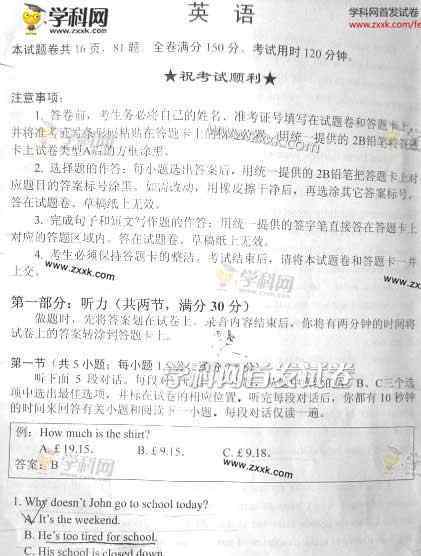 学科网
www.zxxk.com
英 语
学科网首发试卷
www.zxxk.com/fe
本试题卷共16页，81题。全卷满分150分。考试用时120分钟。
★祝考试顺利★
注意事项：
1. 答卷前，考生务必将自己的姓名、准考证号填写在试题卷和答题卡上，
并将准考证号条形码粘贴在答题卡上的指定位置。用统一提供的2B铅笔将答题
卡上试卷类型A后的方框涂黑。
2. 选择题的作答：每小题选出答案后，用统一提供的2B铅笔把答题卡上对
应题目的答案标号涂黑。如需改动，用橡皮擦干净后，再选涂其它答案标号。
答在试题卷、草稿纸上无效。
3. 完成句子和短文写作题的作答：用统一提供的签字笔直接答在答题卡上
对应的答题区域内。答在试题卷、草稿纸上无效。
4. 考生必须保持答题卡的整洁。考试结束后，请将本试题卷和答题卡一并
上交。
www.zxxk.com
学科网
www.zxxk.com
第一部分：听力（共两节，满分30分）
做题时，先将答案划在试卷上。录音内容结束后，你将有两分钟的时间将
试卷上的答案转涂到答题卡上。
第一节（共5小题；每小题1.
学科网首发试卷
听下面5段对话。每段对 B、C三个选
项中选出最佳选项，并标在试卷的相应位置。听完每段对话后，你都有10秒钟
的时间来回答有关小题和阅读下一小题。每段对话仅读一遍。
例：How much is the shirt?
A. £ 19.15. B. £ 9.15. C. £ 9.18.
答案：B
www.zxxk.com
学科网
1. Why doesn't John go to school today?
A. It's the weekend.
B. He's too tired for school.
C. His school is closed down.
学科网
www.zxxk.com